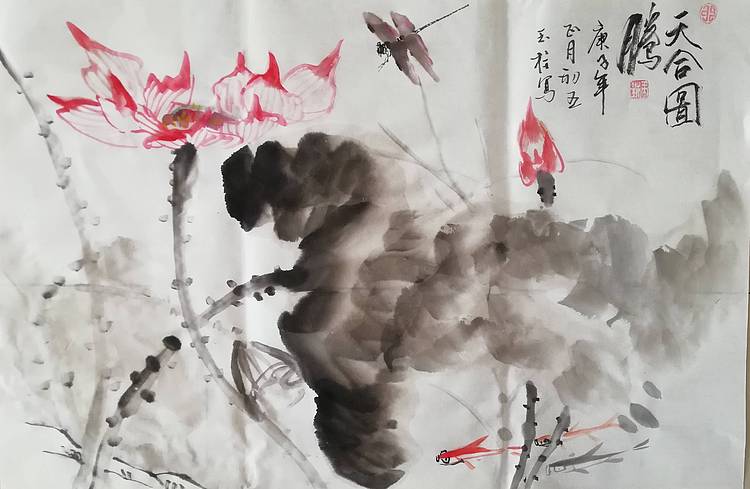 天合圖
鵬
庚子年
正月初五
玉柱寫